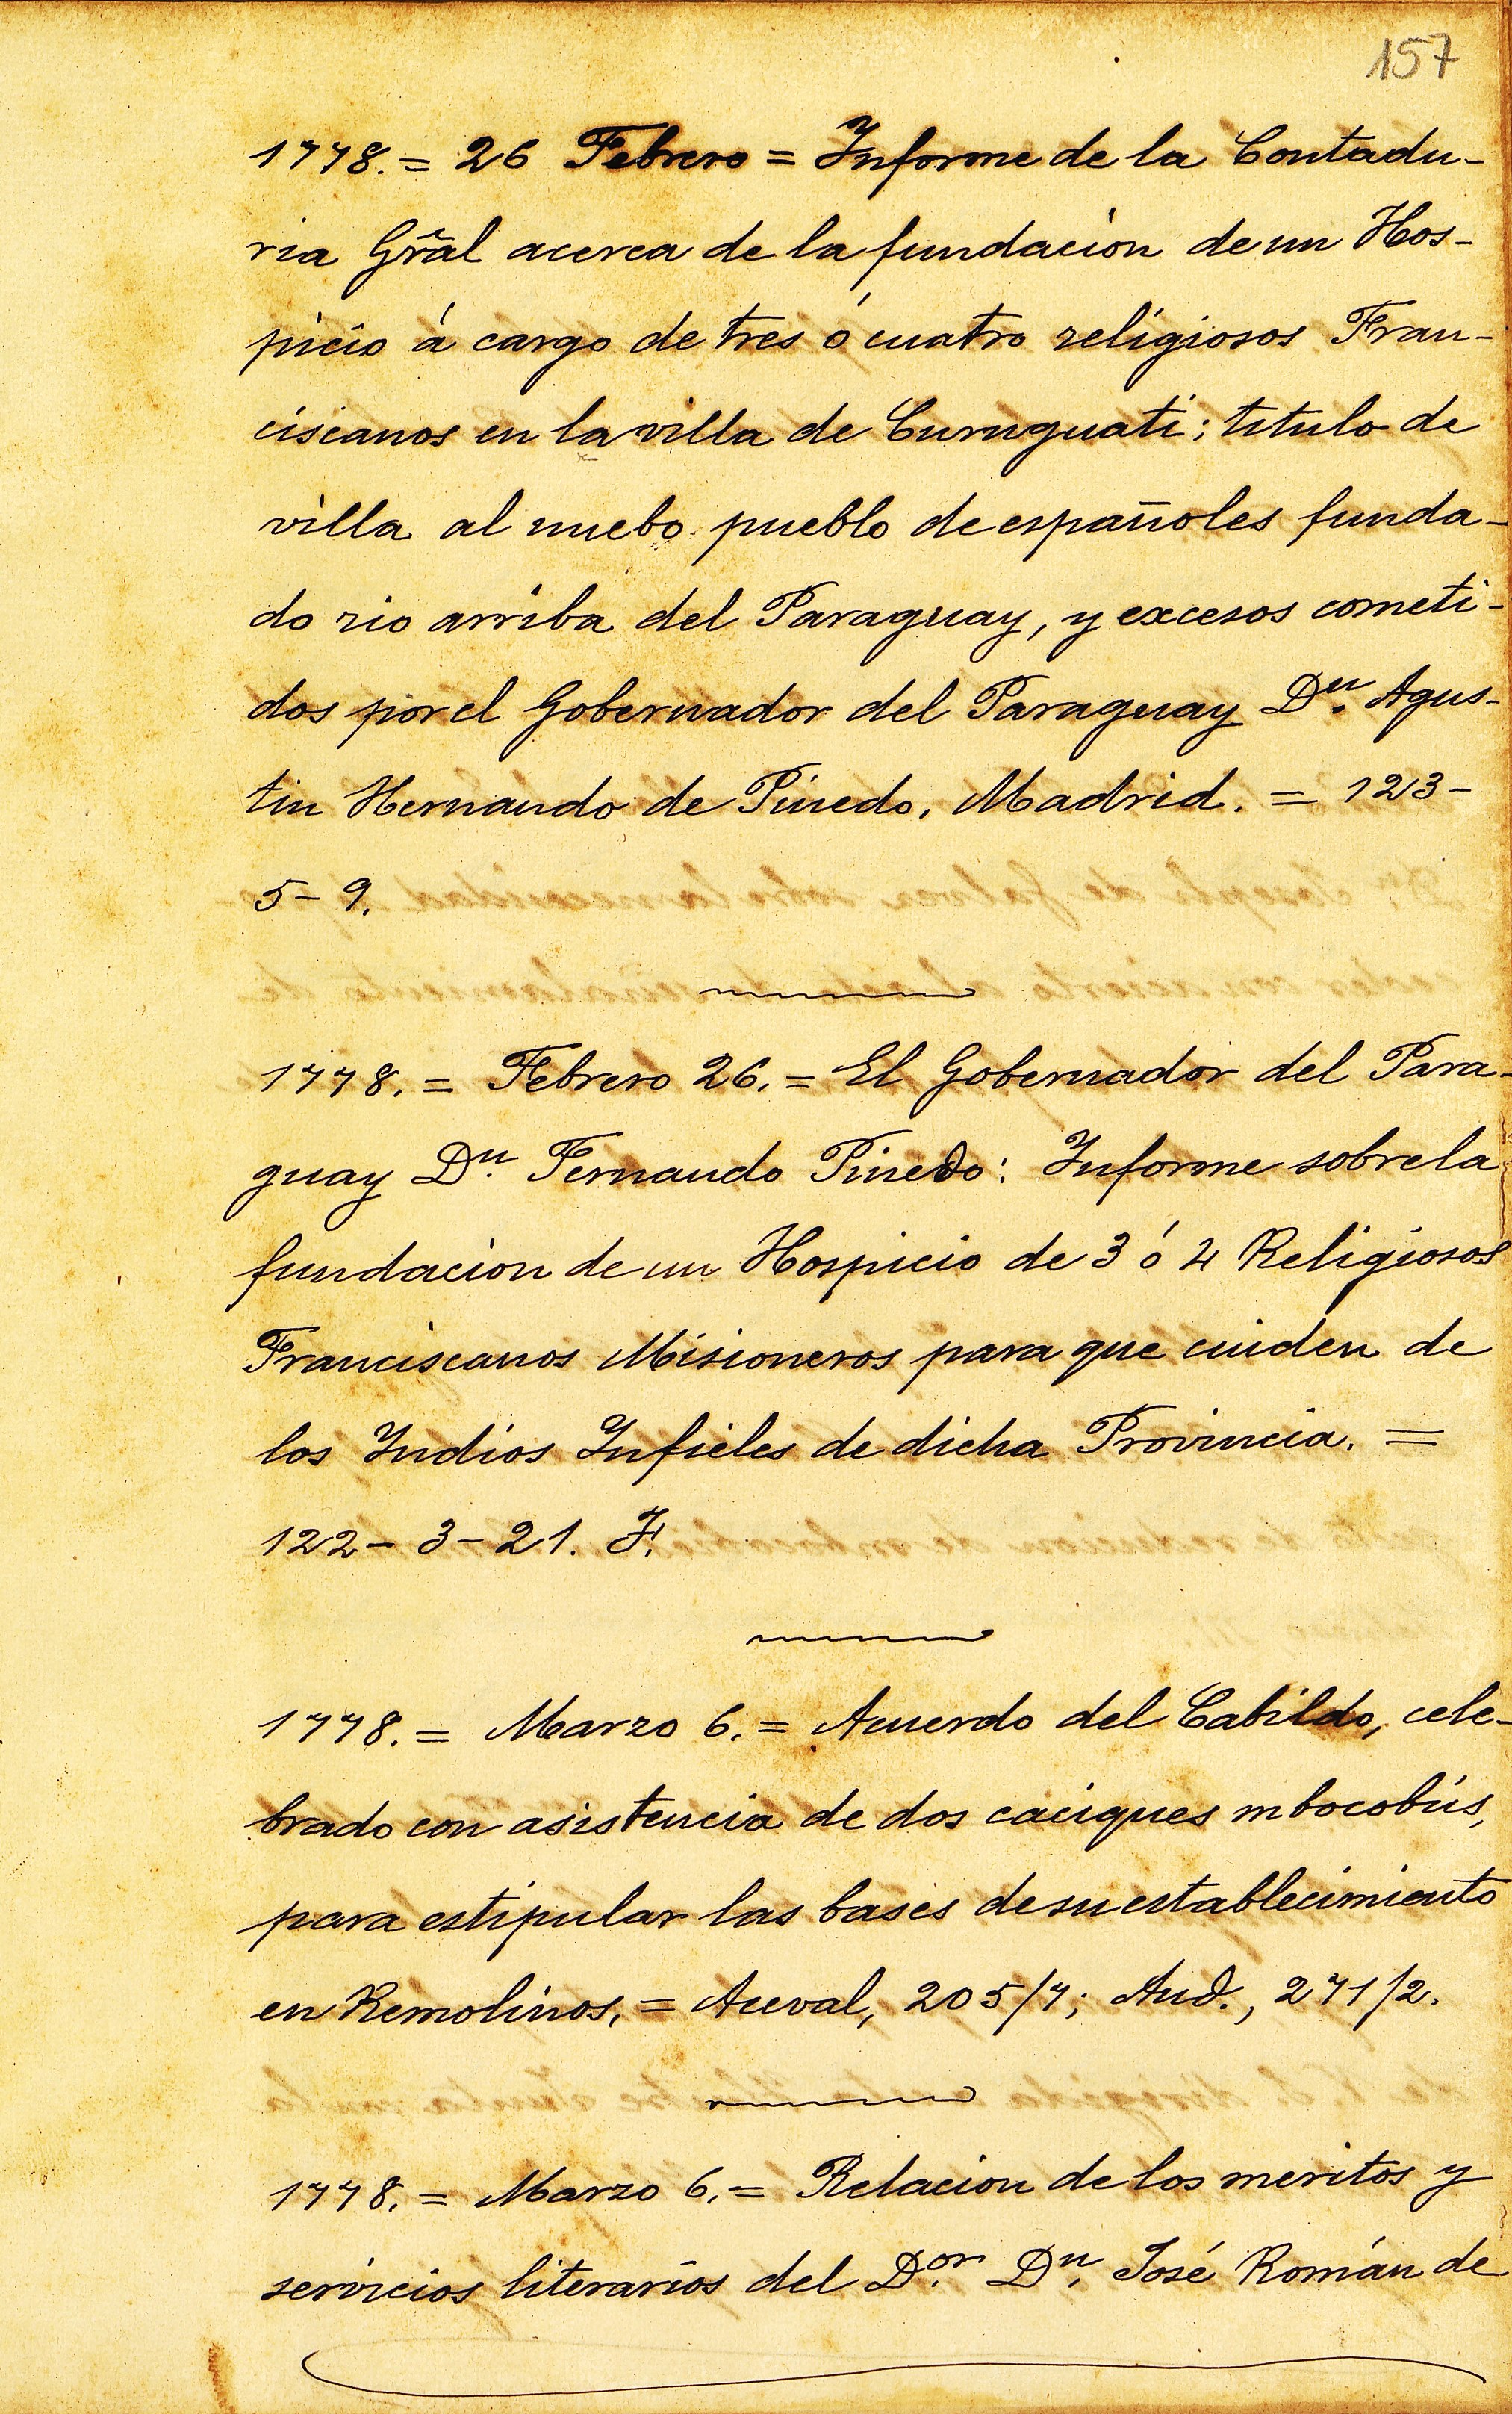 157
1778. = 26 Febrero = Informe de la Contadu-
ria Gr̃al acerca de la fundacion de un Hos-
picio á cargo de tres ó cuatro religiosos Fran-
ciscanos en la villa de Curuguati; titulo de
villa al nuebo pueblo de españoles funda-
do rio arriba del Paraguay, y excesos cometi-
dos por el Gobernador del Paraguay Dn. Agus-
tin Hernando de Pinedo. Madrid. = 123-
5-9.
1778. = Febrero 26. = El Gobernador del Para-
guay Dn. Fernando Pinedo: Informe sobre la
fundacion de un Hospicio de 3 ó 4 Religiosos
Franciscanos Misioneros para que cuiden de
los Indios Infieles de dicha Provincia. =
122-3-21. F.
1778. = Marzo 6. = Acuerdo del Cabildo, cele-
brado con asistencia de dos caciques mbocobís,
para estipular las bases de su establecimiento
en Remolinos. = Aceval, 205/7; Aud., 271/2.
1778. = Marzo 6. = Relacion de los meritos y
servicios literarios del Dor. Dn. José Román de